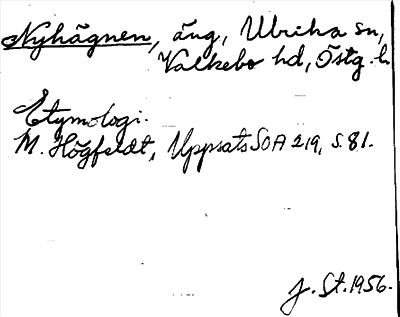 Nyhägnen, äng, Ulrika sn,
Valkebo hd, Östg. l.
Etymologi.
M. Högfeldt, Uppsats SOA 219, s. 81.
J. St. 1956.